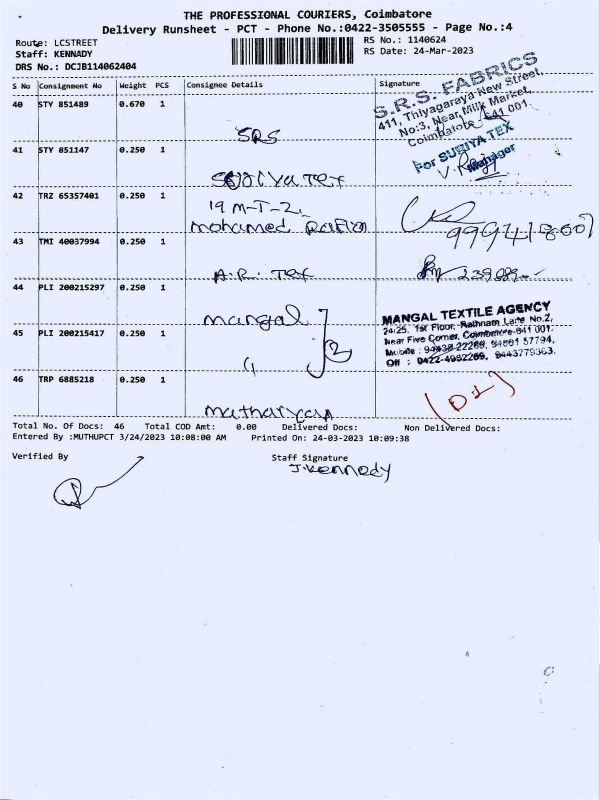 THE PROFESSIONAL COURIERS, Coimbatore
Delivery Runsheet - PCT - Phone No.:0422-3505555 - Page No.:4
Route: LCSTREET
Staff: KENNADY
DRS No.: DCJB114062404
RS No.: 1140624
RS Date: 24-Mar-2023
S No Consignment No Weight PCS Consignee Details Signature
40 STY 851489 0.670 1
SRS
S.R.S. FABRICS
411, Thiyagaraya New Street,
No:3, Near, Milk Market,
Coimbatore 641 001.
41 STY 851147 0.250 1
Suriya Tex
For SURIYA TEX
Manager
42 TRZ 65357401 0.250 1
19 M-T-2,
Mohamed
43 TMI 40037994 0.250 1
A.R. Tex
44 PLI 200215297 0.250 1
mangal
MANGAL TEXTILE AGENCY
24/25, 1st Floor, Rathnam Lane No.2,
Near Five Corner, Coimbatore-641 001.
45 PLI 200215417 0.250 1
2
46 TRP 6885218 0.250 1
Total No. Of Docs: 46 Total COD Amt: 0.00 Delivered Docs: Non Delivered Docs:
Entered By :MUTHUPCT 3/24/2023 10:08:00 AM Printed On: 24-03-2023 10:09:38
Verified By
Staff Signature
J.Kennady